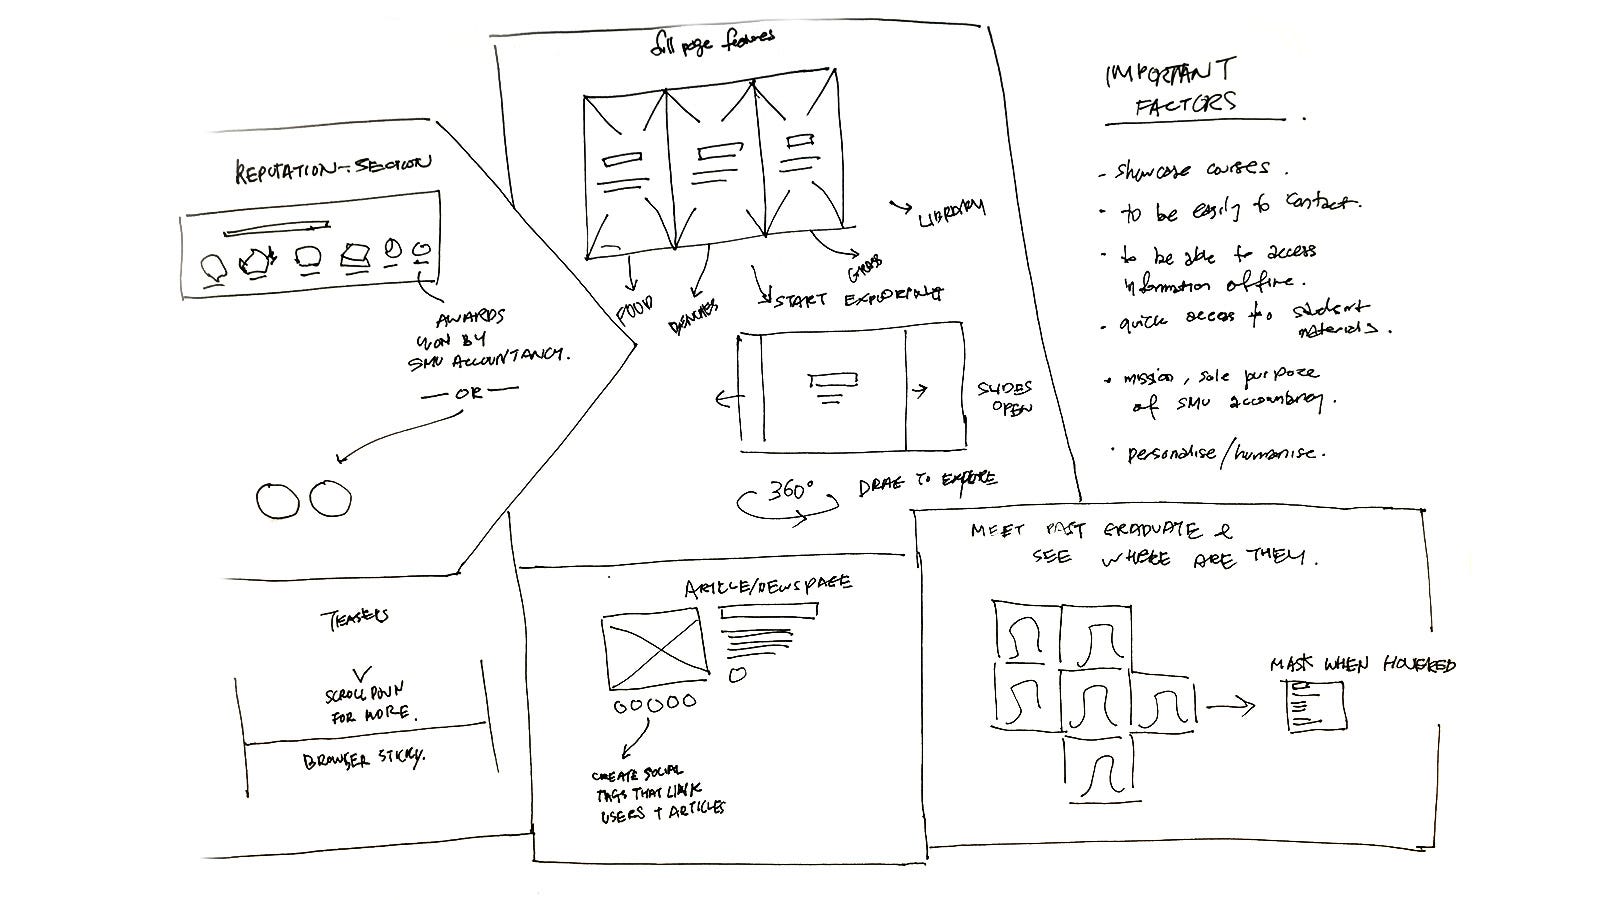 full page features
REPUTATION - SECTION
AWARDS
WON BY
SMU ACCOUNTANCY.
— OR —
FOOD
BENCHES
GRASS
LIBRARY
START EXPLORING
SLIDES
OPEN
360°
DRAG TO EXPLORE
IMPORTANT
FACTORS
- showcase courses.
- to be easily to contact.
- to be able to access
information offline.
- quick access to student
materials.
- mission, sole purpose
of SMU accountancy.
- personalise/humanise.
TEASERS
SCROLL DOWN
FOR MORE.
BROWSER STICKY.
ARTICLE/NEWS PAGE
CREATE SOCIAL
TAGS THAT LINK
USERS + ARTICLES
MEET PAST GRADUATE &
SEE WHERE ARE THEY.
MASK WHEN HOVERED